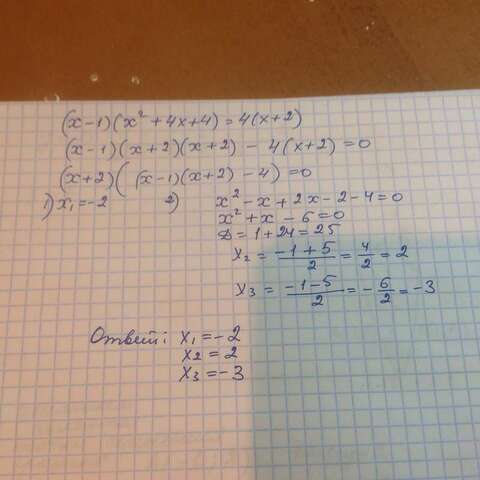 (x-1)(x²+4x+4)=4(x+2)
(x-1)(x+2)(x+2) - 4(x+2)=0
(x+2)((x-1)(x+2)-4)=0
1) x₁=-2 2) x²-x+2x-2-4=0
x²+x-6=0
D=1+24=25
x₂ = (-1+5)/2 = 4/2 = 2
x₃ = (-1-5)/2 = -6/2 = -3
Ответ: x₁=-2
x₂=2
x₃=-3